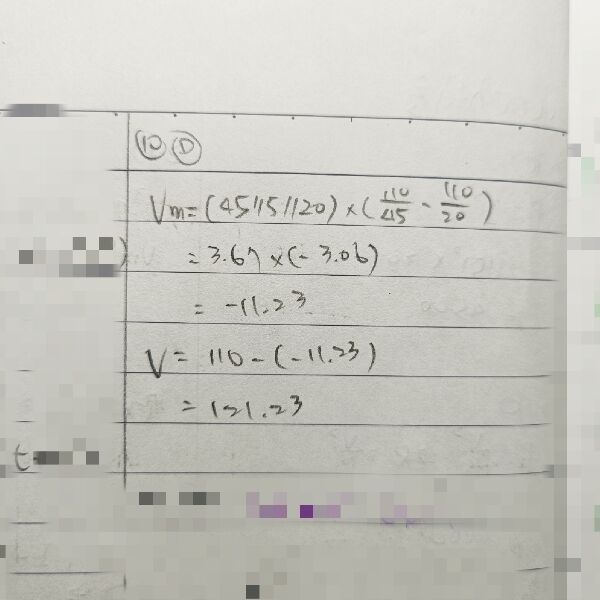 ⑩ Ⓓ
Vm = (45//5//20) × (110/45 - 110/20)
= 3.67 × (-3.06)
= -11.23
V = 110 - (-11.23)
= 121.23
t